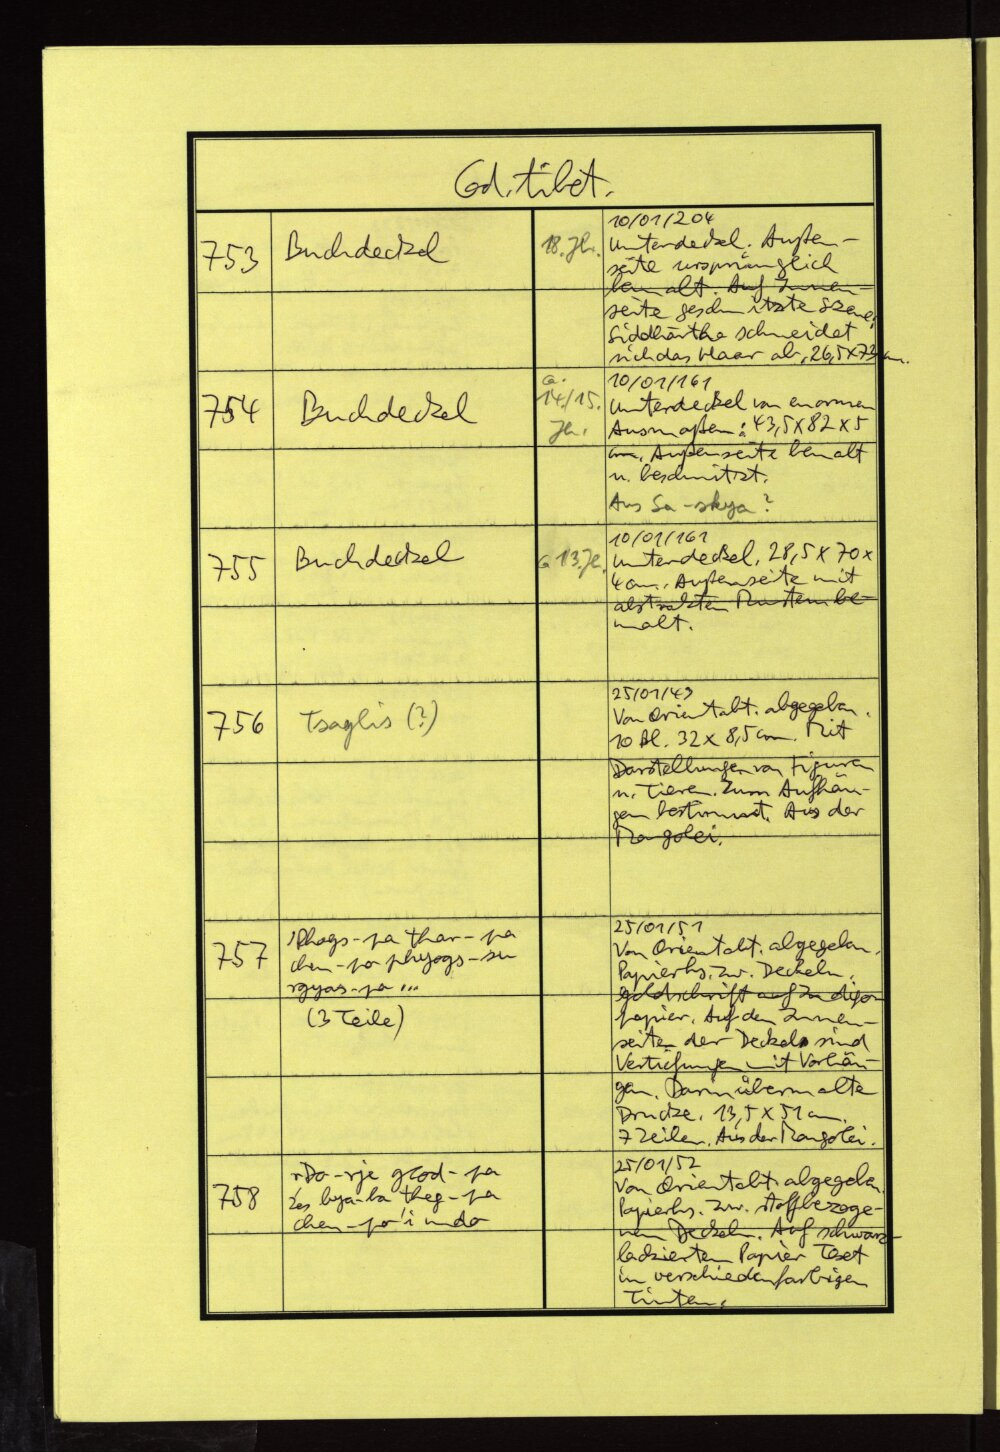 Cod. tibet.
753
Buchdeckel
18. Jh.
10/01/204
Unterdeckel. Außen-
seite ursprünglich
bemalt. Auf Innen-
seite geschnitzte Szene:
Siddhārtha schneidet
sich das Haar ab, 26,5 x 73 cm.
754
Buchdeckel
ca.
14./15.
Jh.
10/01/161
Unterdeckel von enormen
Ausmaßen: 43,5 x 82 x 5
cm. Außenseite bemalt
u. beschnitzt.
Aus Sa-skya?
755
Buchdeckel
ca. 13. Jh.
10/01/161
Unterdeckel, 28,5 x 70 x
4 cm. Außenseite mit
abstrakten Mustern be-
malt.
756
Tsaglis (?)
25/01/43
Von Orientabt. abgegeben.
10 Bl. 32 x 8,5 cm. Mit
Darstellungen von Figuren
u. Tieren. Zum Aufhän-
gen bestimmt. Aus der
Mongolei.
757
'Phags-pa thar-pa
chen-po phyogs-su
rgyas-pa ...
(3 Teile)
25/01/51
Von Orientabt. abgegeben.
Papierhs. zw. Deckeln.
Goldschrift auf Indigo-
papier. Auf den Innen-
seiten der Deckel sind
Vertiefungen mit Vorhän-
gen. Darin übermalte
Drucke. 13,5 x 51 cm.
7 Zeilen. Aus der Mongolei.
758
rDo-rje gcod-pa
źes bya-ba theg-pa
chen-po'i mdo
25/01/52
Von Orientabt. abgegeben.
Papierhs. zw. stoffbezoge-
nen Deckeln. Auf schwarz-
lackiertem Papier Text
in verschiedenfarbigen
Tinten.